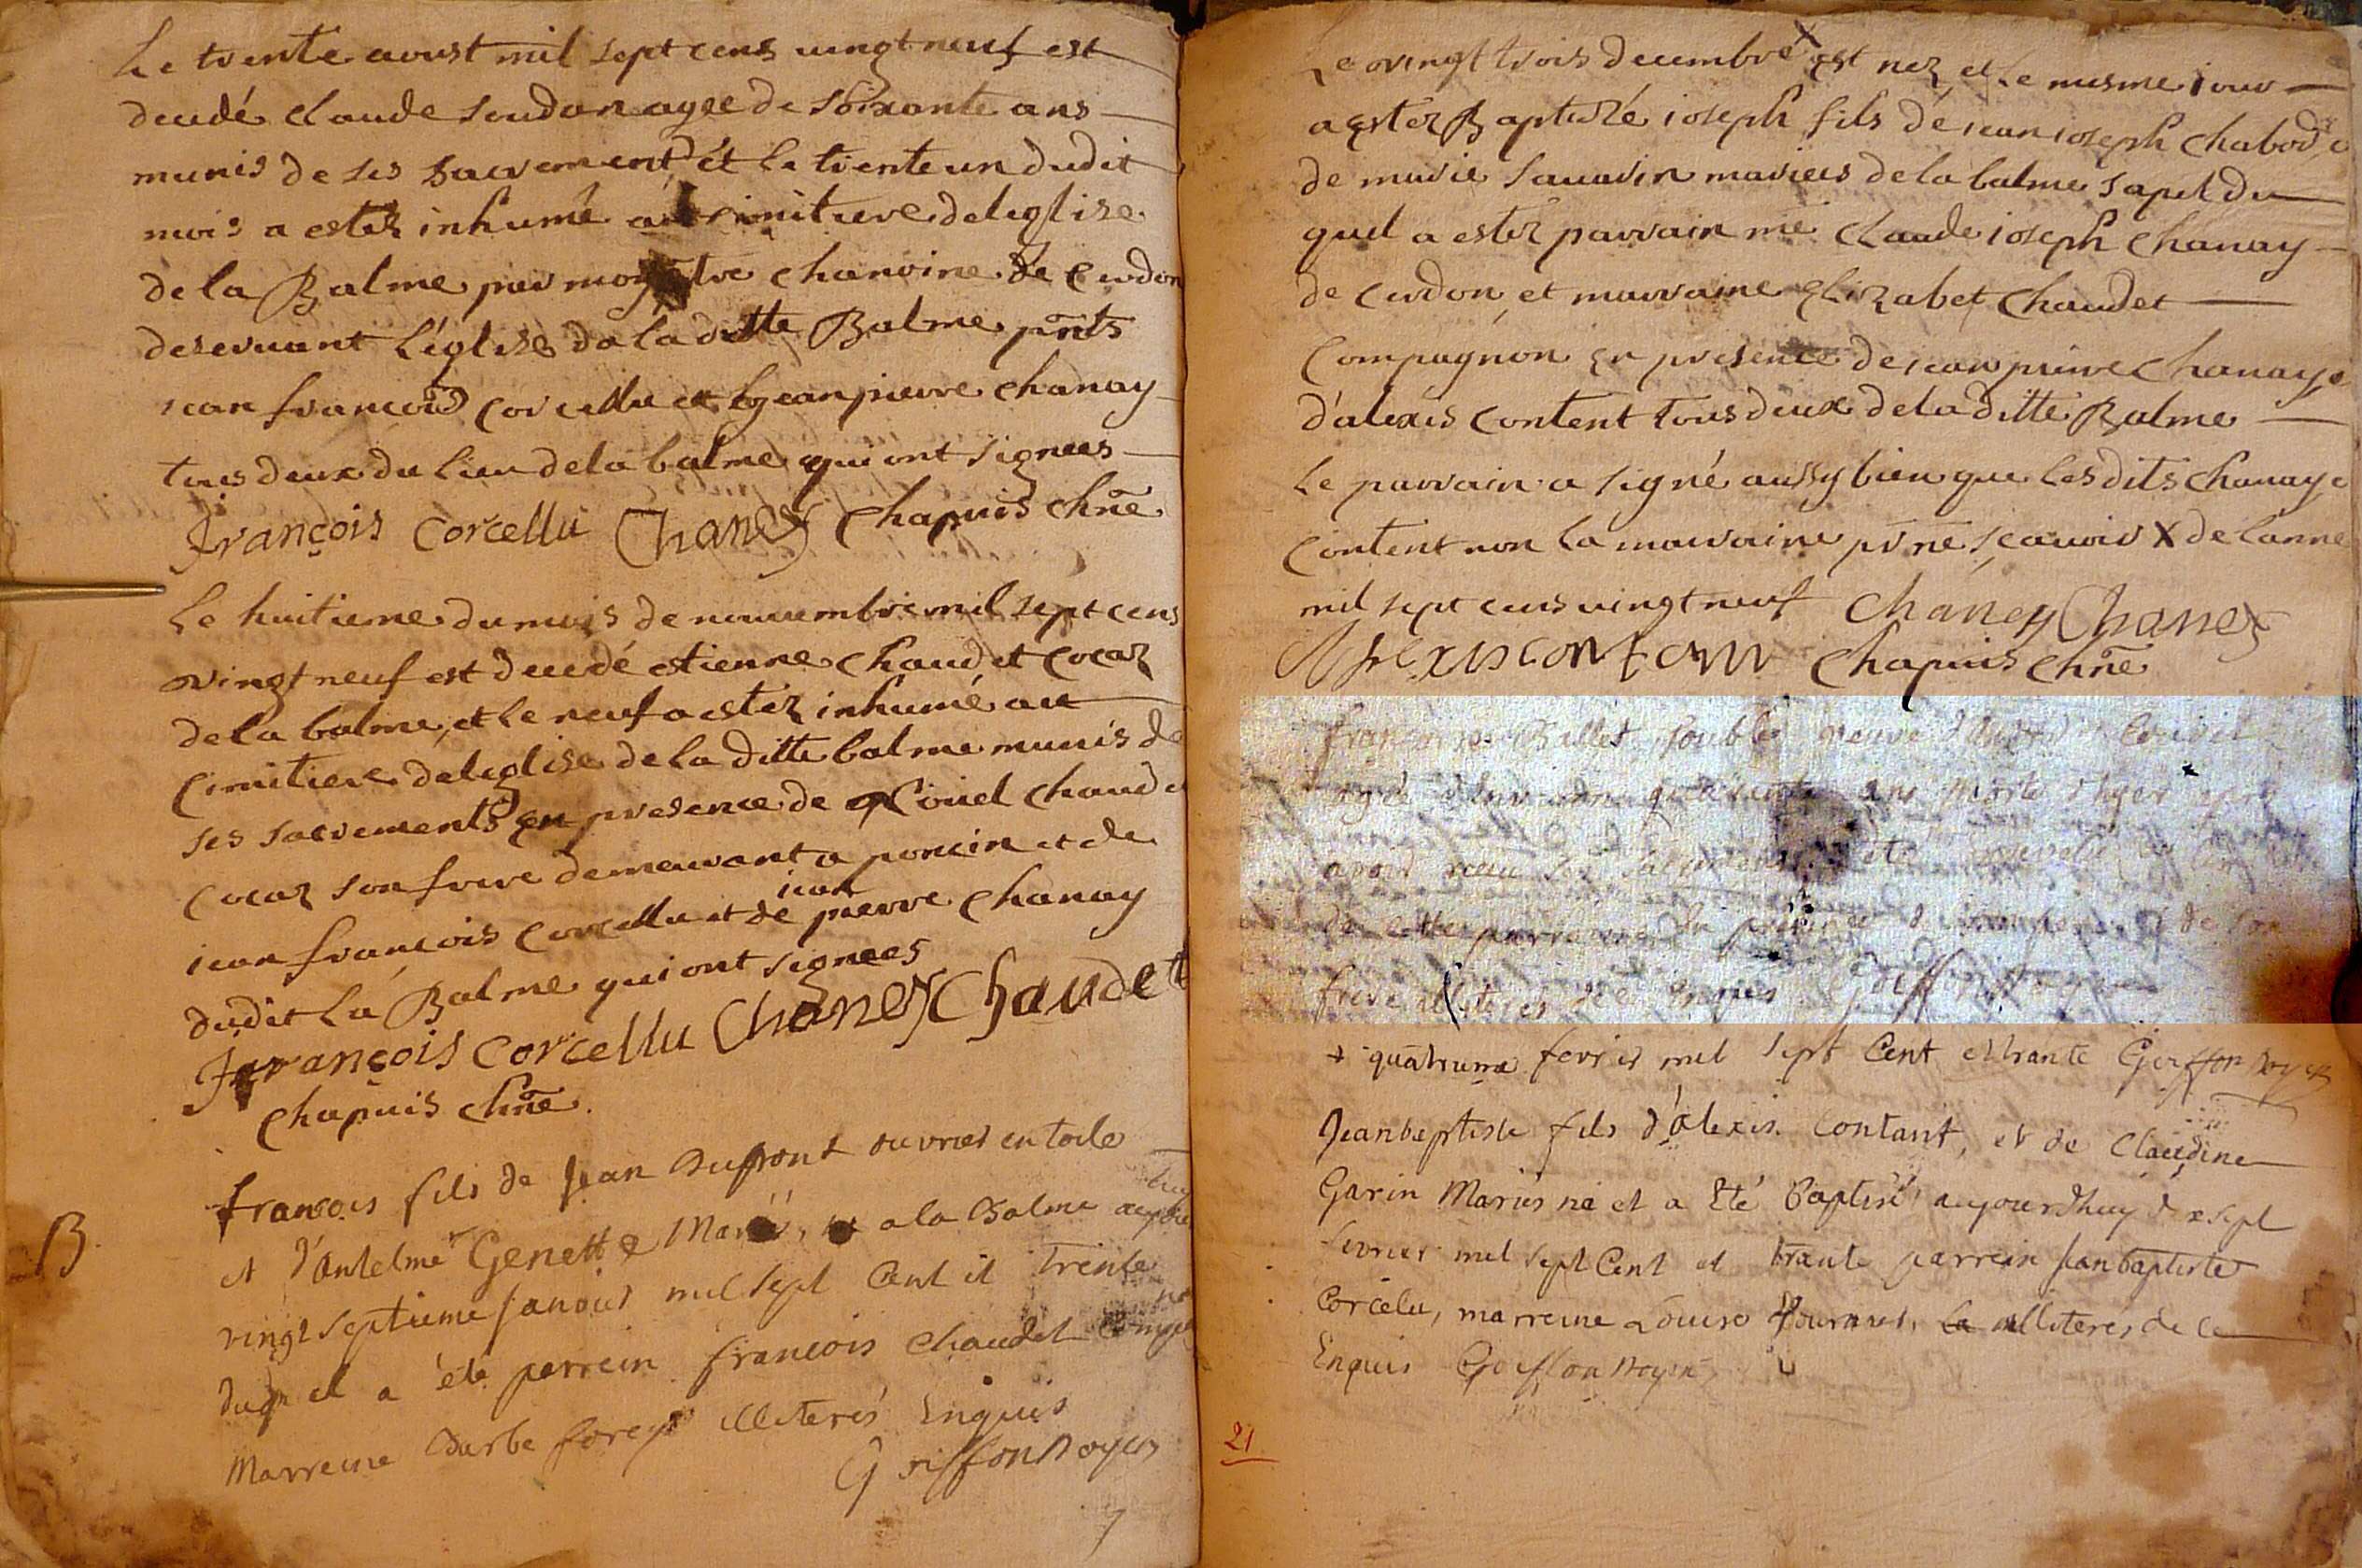 Le trente aoust mil sept cens vingt neuf est
decedé claude soudan agee de soixante ans
munis de ses sacrement et le trente un dudit
mois a estez inhumé au cimitiere de leglise
de la Balme par moy chanoine de Cerdon
deservant L'église de la ditte Balme pnts
jean francois Corcellu et jean pierre chanay
tous deux du lieu de la balme qui ont signees
françois Corcellu Chaney Chapuis chne
Le huitieme du mois de nouembre mil sept cens
vingt neuf est decedé estienne chaudet Cocaz
de la balme, et le neuf a estez inhumé au
Cimitiere de leglise de la ditte balme munis de
ses sacrements en presence de Chaudet
Cocaz son frere demeurant a poncin et de
jean françois Corcellu et de jean pierre chanay
dudit La Balme qui ont signees
françois Corcellu Chaney Chaudet
Chapuis chne
B
francois fils de Jean Dupont ouvrier en toile
et d'antelme Genette Mariés, a la Balme
vingt septieme janvier mil sept Cent et trente
duquel a été parrein francois Chaudet
Marreine Barbe forey illiterés Enquis
Griffon Doyen
Le vingt trois decembre X est nez, et le mesme jour
a estez Baptizé joseph fils de jean joseph Chabod e
de marie sauarin mariees de la balme sapel du
quel a estez parrain me Claude joseph Chanay
de Cerdon, et marraine Elizabet Chaudet
Compagnon en presence de jean pierre Chanay e
d'alexis Content tous deux de la ditte Balme
Le parrain a signé aussy bien que les dits Chanay e
Content non la marraine pr ne sçauoir X de lanne
mil sept cens vingt neuf Chaney Chaney
Alexis Contant Chapuis chne
françoise Ballet veuve
agée quarante ans morte
avoir receu ses sacremens été
de cette parroisse En presence de son
frere illiterés de ce Enquis Griffon
+ quatrieme fevrier mil sept Cent et trante Griffon Doyen
Jean baptiste fils d'alexis Contant, et de Claudine
Garin Mariés né et a Eté Baptisé aujourdhuy dixsept
fevrier mil sept Cent et trante parrein Jean baptiste
Corcelu, marreine Louise fournier, illiterés de ce
Enquis Griffon Doyen
21